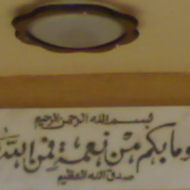 بسم الله الرحمن الرحيم
وما بكم من نعمة فمن الله
صدق الله العظيم